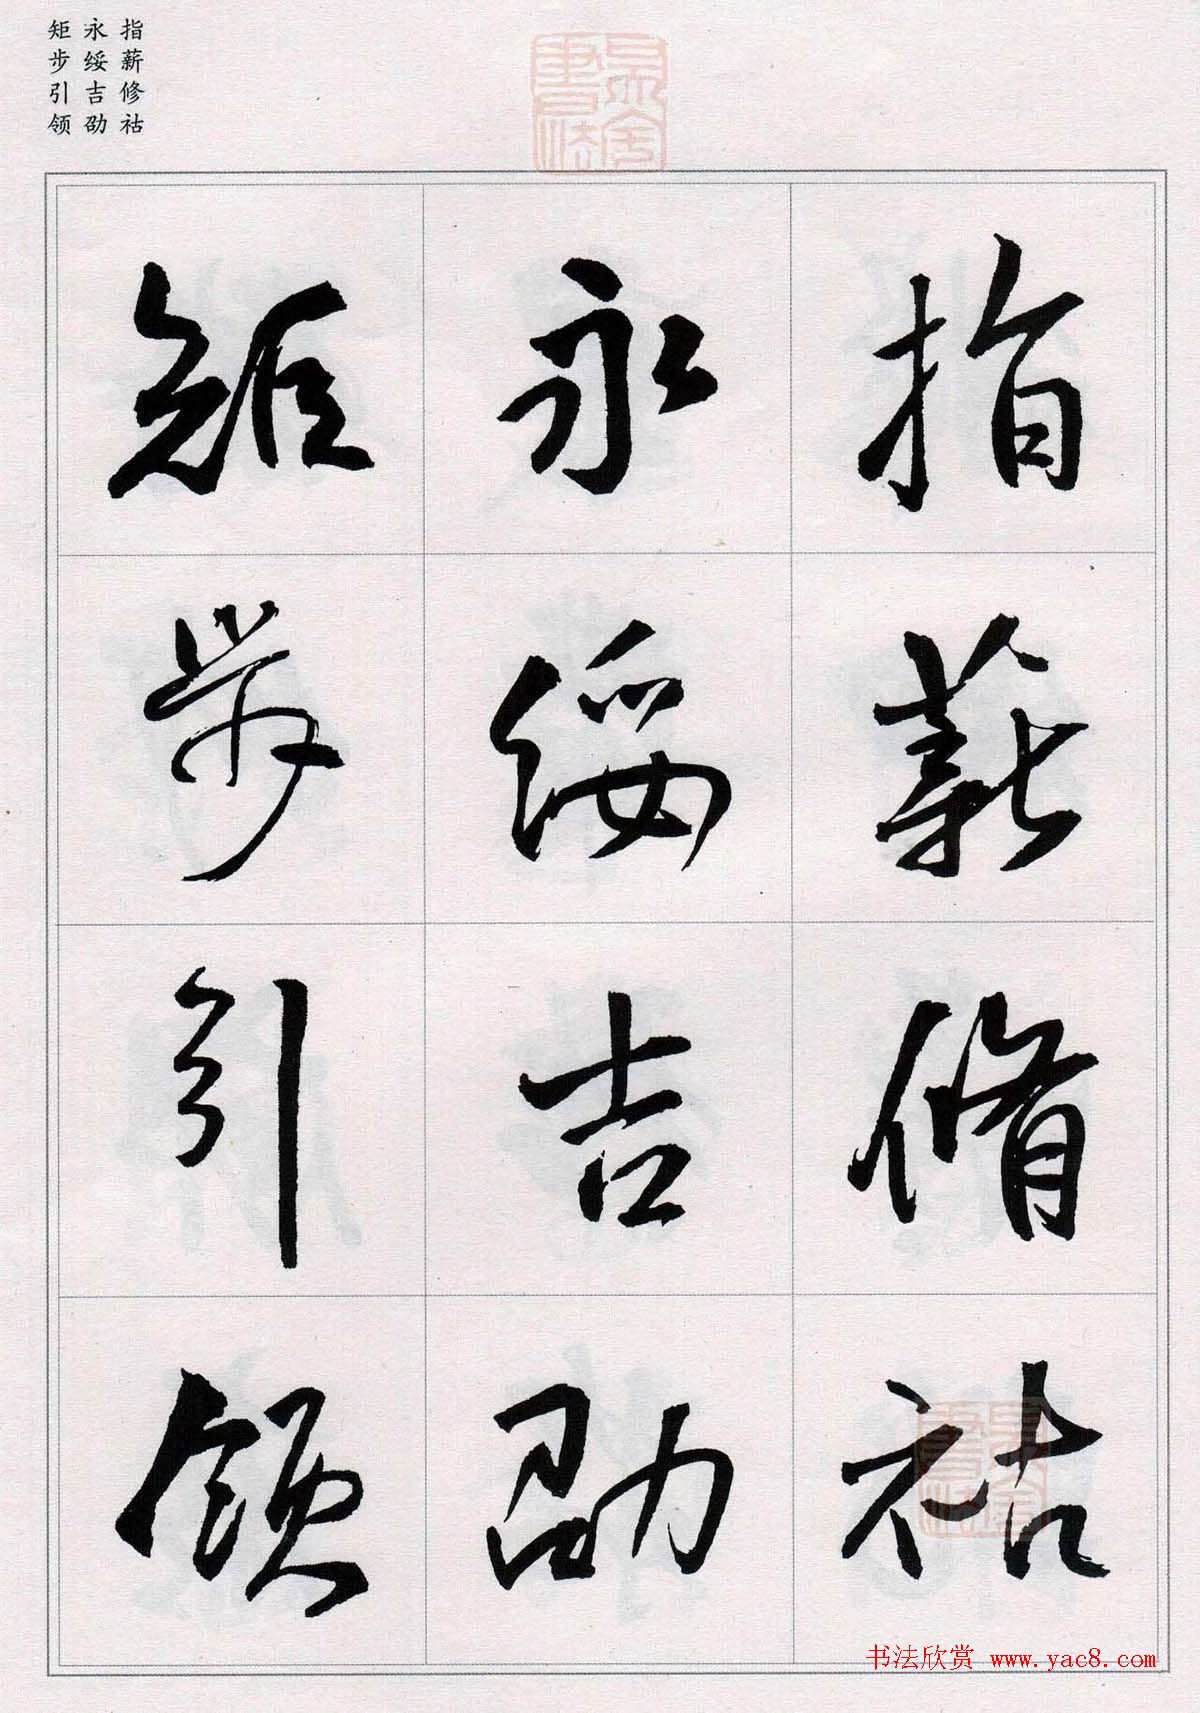 指薪修祜
永绥吉劭
矩步引领
指薪脩祜
永绥吉劭
矩步引领
书法欣赏 www.yac8.com